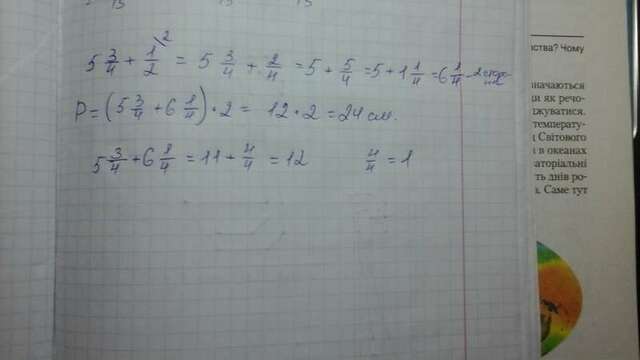 5 3/4 + 1/2 \2 = 5 3/4 + 2/4 = 5 + 5/4 = 5 + 1 1/4 = 6 1/4 - 2
P = (5 3/4 + 6 1/4) · 2 = 12 · 2 = 24 см.
5 3/4 + 6 1/4 = 11 + 4/4 = 12 4/4 = 1
ства? Чому
значаються
ди як речо-
джуватися.
температу-
Світового
в океанах
аторіальні
ть днів ро-
а. Саме тут